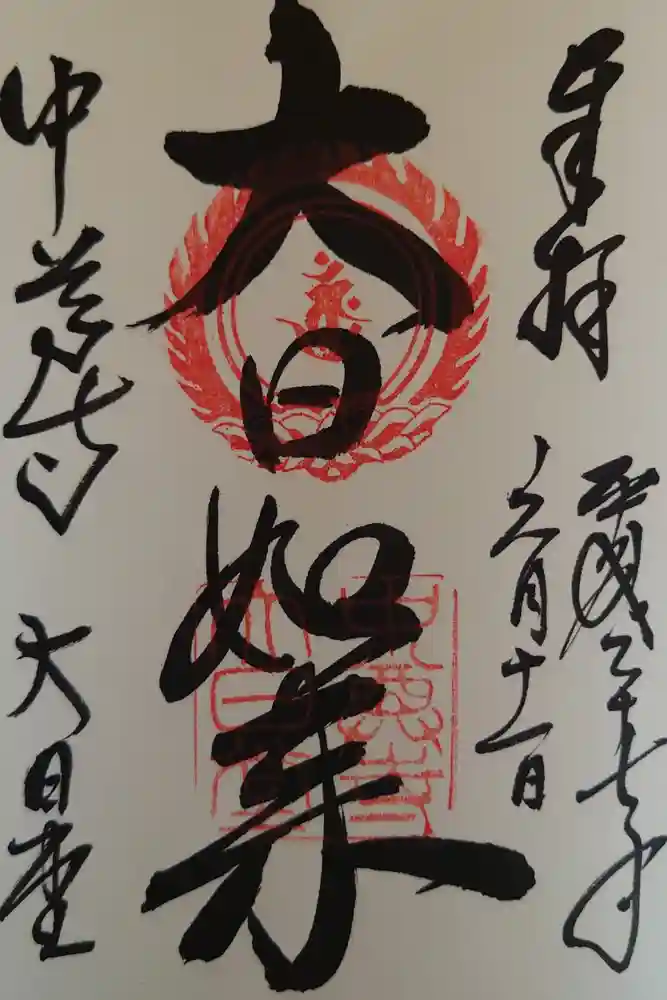 奉拝
平成二十七年
六月十一日
大日如来
中
大日堂